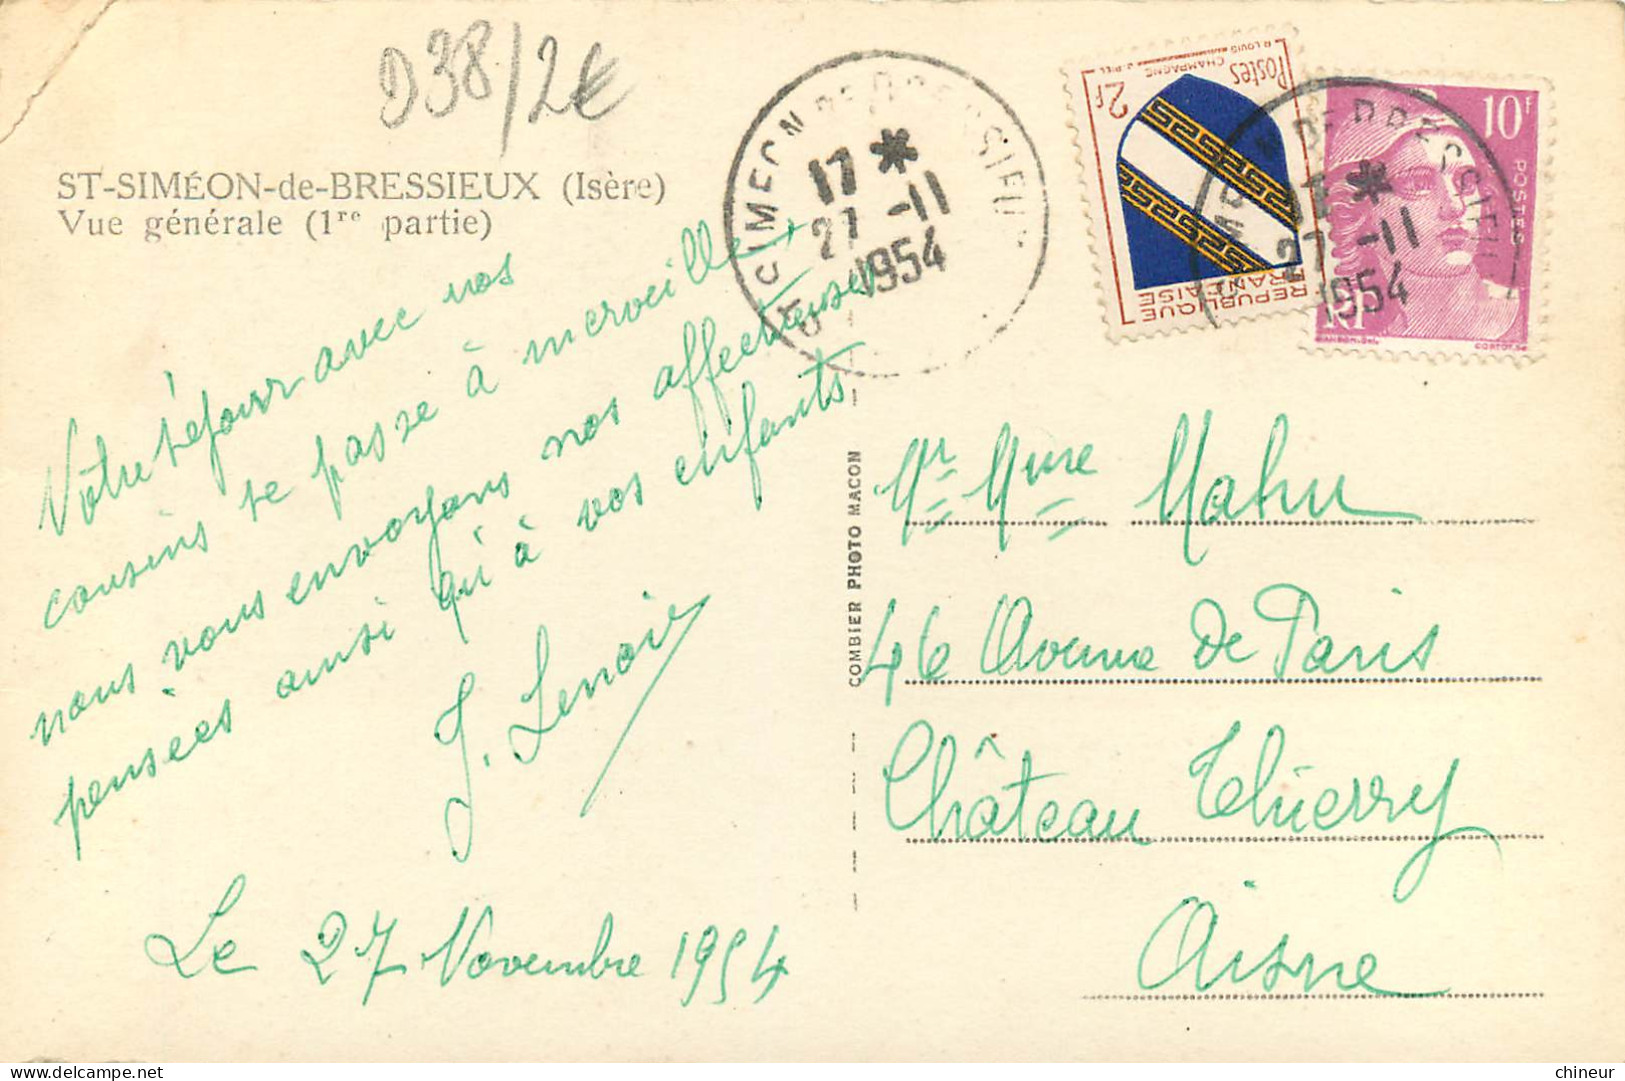 D38/2€
ST-SIMÉON-de-BRESSIEUX (Isère)
Vue générale (1re partie)
Votre séjour avec nos
cousins se passe à merveille,
nous vous envoyons nos affectueuses
pensées ainsi qu'à vos enfants
J. Lenoir
Le 27 Novembre 1954
COMBIER PHOTO MACON
ST SIMEON DE BRESSIEUX
17 *
27 -11
1954
2f
Postes
R. LOUIS CHAMPAGNE J. PIEL
REPUBLIQUE
FRANCAISE
SIMEON DE BRESSIEUX
17 *
27 -11
1954
10F
POSTES
RF
GANDON-DEL CORTOT.SC
Mr Mme Mahu
46 Avenue de Paris
Château Thierry
Aisne
chineur